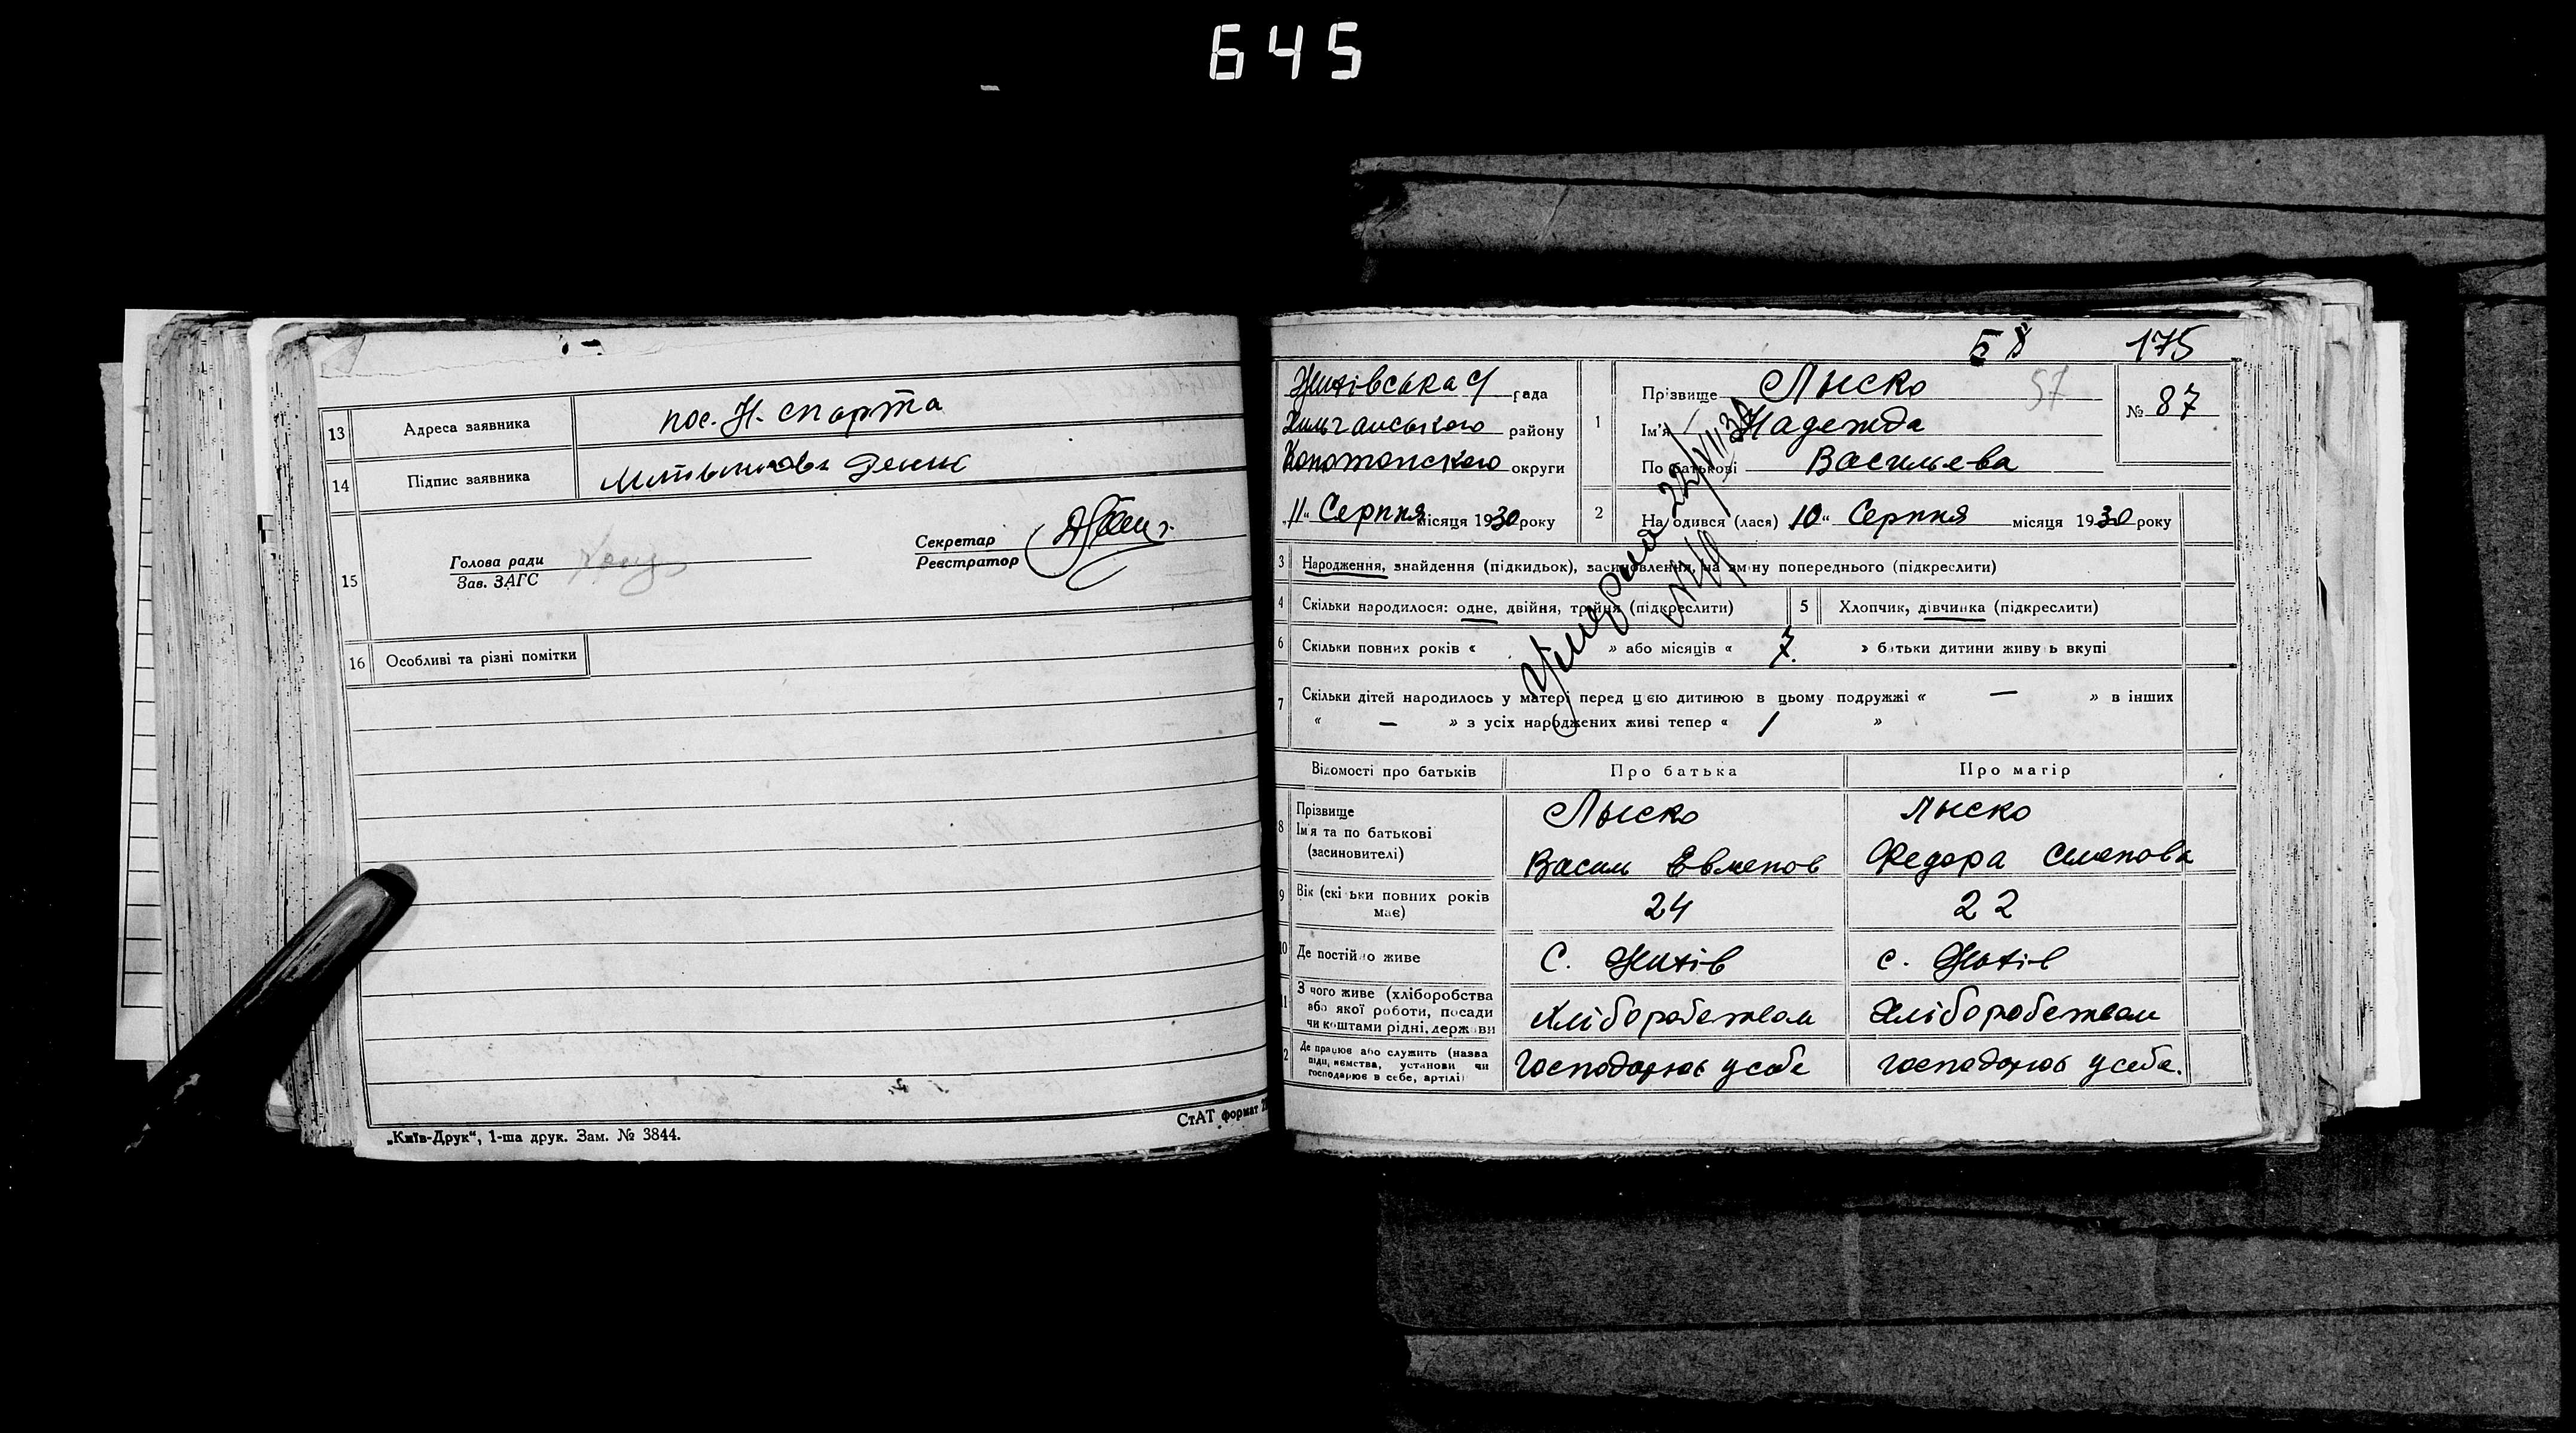 645
13 Адреса заявника пос. Н. спарта
14 Підпис заявника Денис
15 Голова ради
Зав. ЗАГС
Секретар
Реєстратор
16 Особливі та різні помітки
„Київ-Друк“, 1-ша друк. Зам. № 3844.
СтАТ формат
58 175
57
№ 87
рада
району
Конотопского округи
„11“ Серпня місяця 1930 року
1 Прізвище Лыско
Ім'я Надежда
По батькові Васильева
2 Народився (лася) 10“ Серпня місяця 1930 року
3 Народження, знайдення (підкидьок), засиновлення, на зміну попереднього (підкреслити)
4 Скільки народилося: одне, двійня, тройня (підкреслити)
5 Хлопчик, дівчинка (підкреслити)
6 Скільки повних років « » або місяців « 7. » батьки дитини живуть вкупі
7 Скільки дітей народилось у матері перед цією дитиною в цьому подружжі « — » в інших
« — » з усіх народжених живі тепер « 1 »
Відомості про батьків Про батька Про матір
8 Прізвище
Ім'я та по батькові
(засиновителі)
Лыско
Василь Евменов
Лыско
Федора Семенова
9 Вік (скільки повних років
має)
24 22
10 Де постійно живе
с. с.
11 З чого живе (хліборобства
або якої роботи, посади
чи коштами рідні, держави
хліборобством хліборобством
12 Де працює або служить (назва
підприємства, установи чи
господарює в себе, артілі)
господарює у себе господарює у себе.